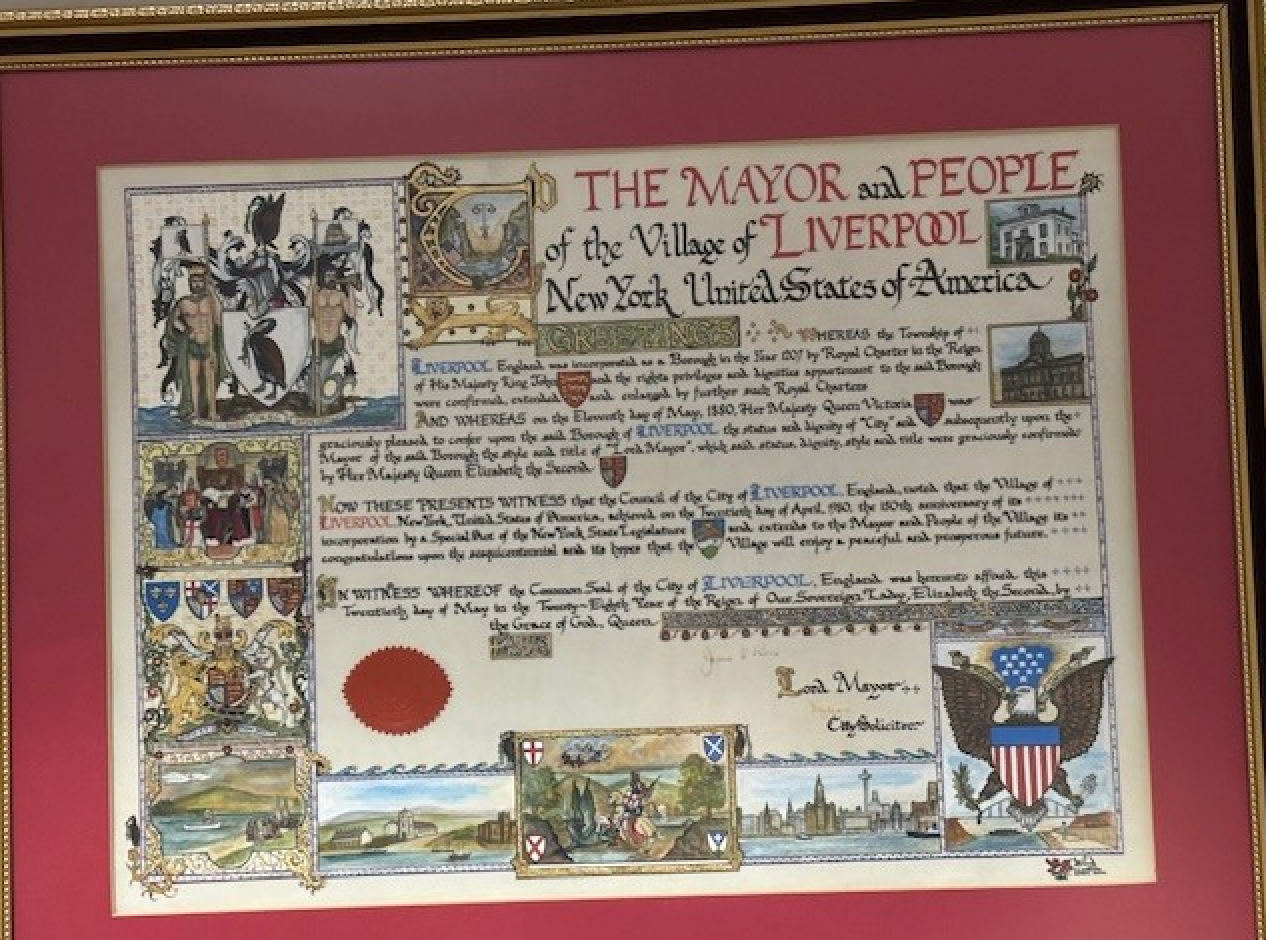 To THE MAYOR and PEOPLE
of the Village of LIVERPOOL
New York United States of America
GREETINGS WHEREAS the Township of
LIVERPOOL England was incorporated as a Borough in the Year 1207 by Royal Charter in the Reign
of His Majesty King John and the rights privileges and dignities appurtenant to the said Borough
were confirmed, extended and enlarged by further such Royal Charters
AND WHEREAS on the Eleventh day of May, 1880, Her Majesty Queen Victoria was
graciously pleased to confer upon the said Borough of LIVERPOOL the status and dignity of "City" and subsequently upon the
Mayor of the said Borough the style and title of "Lord Mayor", which said status, dignity, style and title were graciously confirmed
by Her Majesty Queen Elizabeth the Second.
NOW THESE PRESENTS WITNESS that the Council of the City of LIVERPOOL, England, noted that the Village of
LIVERPOOL, New York, United States of America, achieved on the Twentieth day of April, 1980, the 150th anniversary of its
incorporation by a Special Act of the New York State Legislature and extends to the Mayor and People of the Village its
congratulations upon the sesquicentennial and its hopes that the Village will enjoy a peaceful and prosperous future.
IN WITNESS WHEREOF the Common Seal of the City of LIVERPOOL, England was hereunto affixed this
Twentieth day of May in the Twenty-Eighth Year of the Reign of Our Sovereign Lady, Elizabeth the Second, by
the Grace of God, Queen
Lord Mayor
City Solicitor